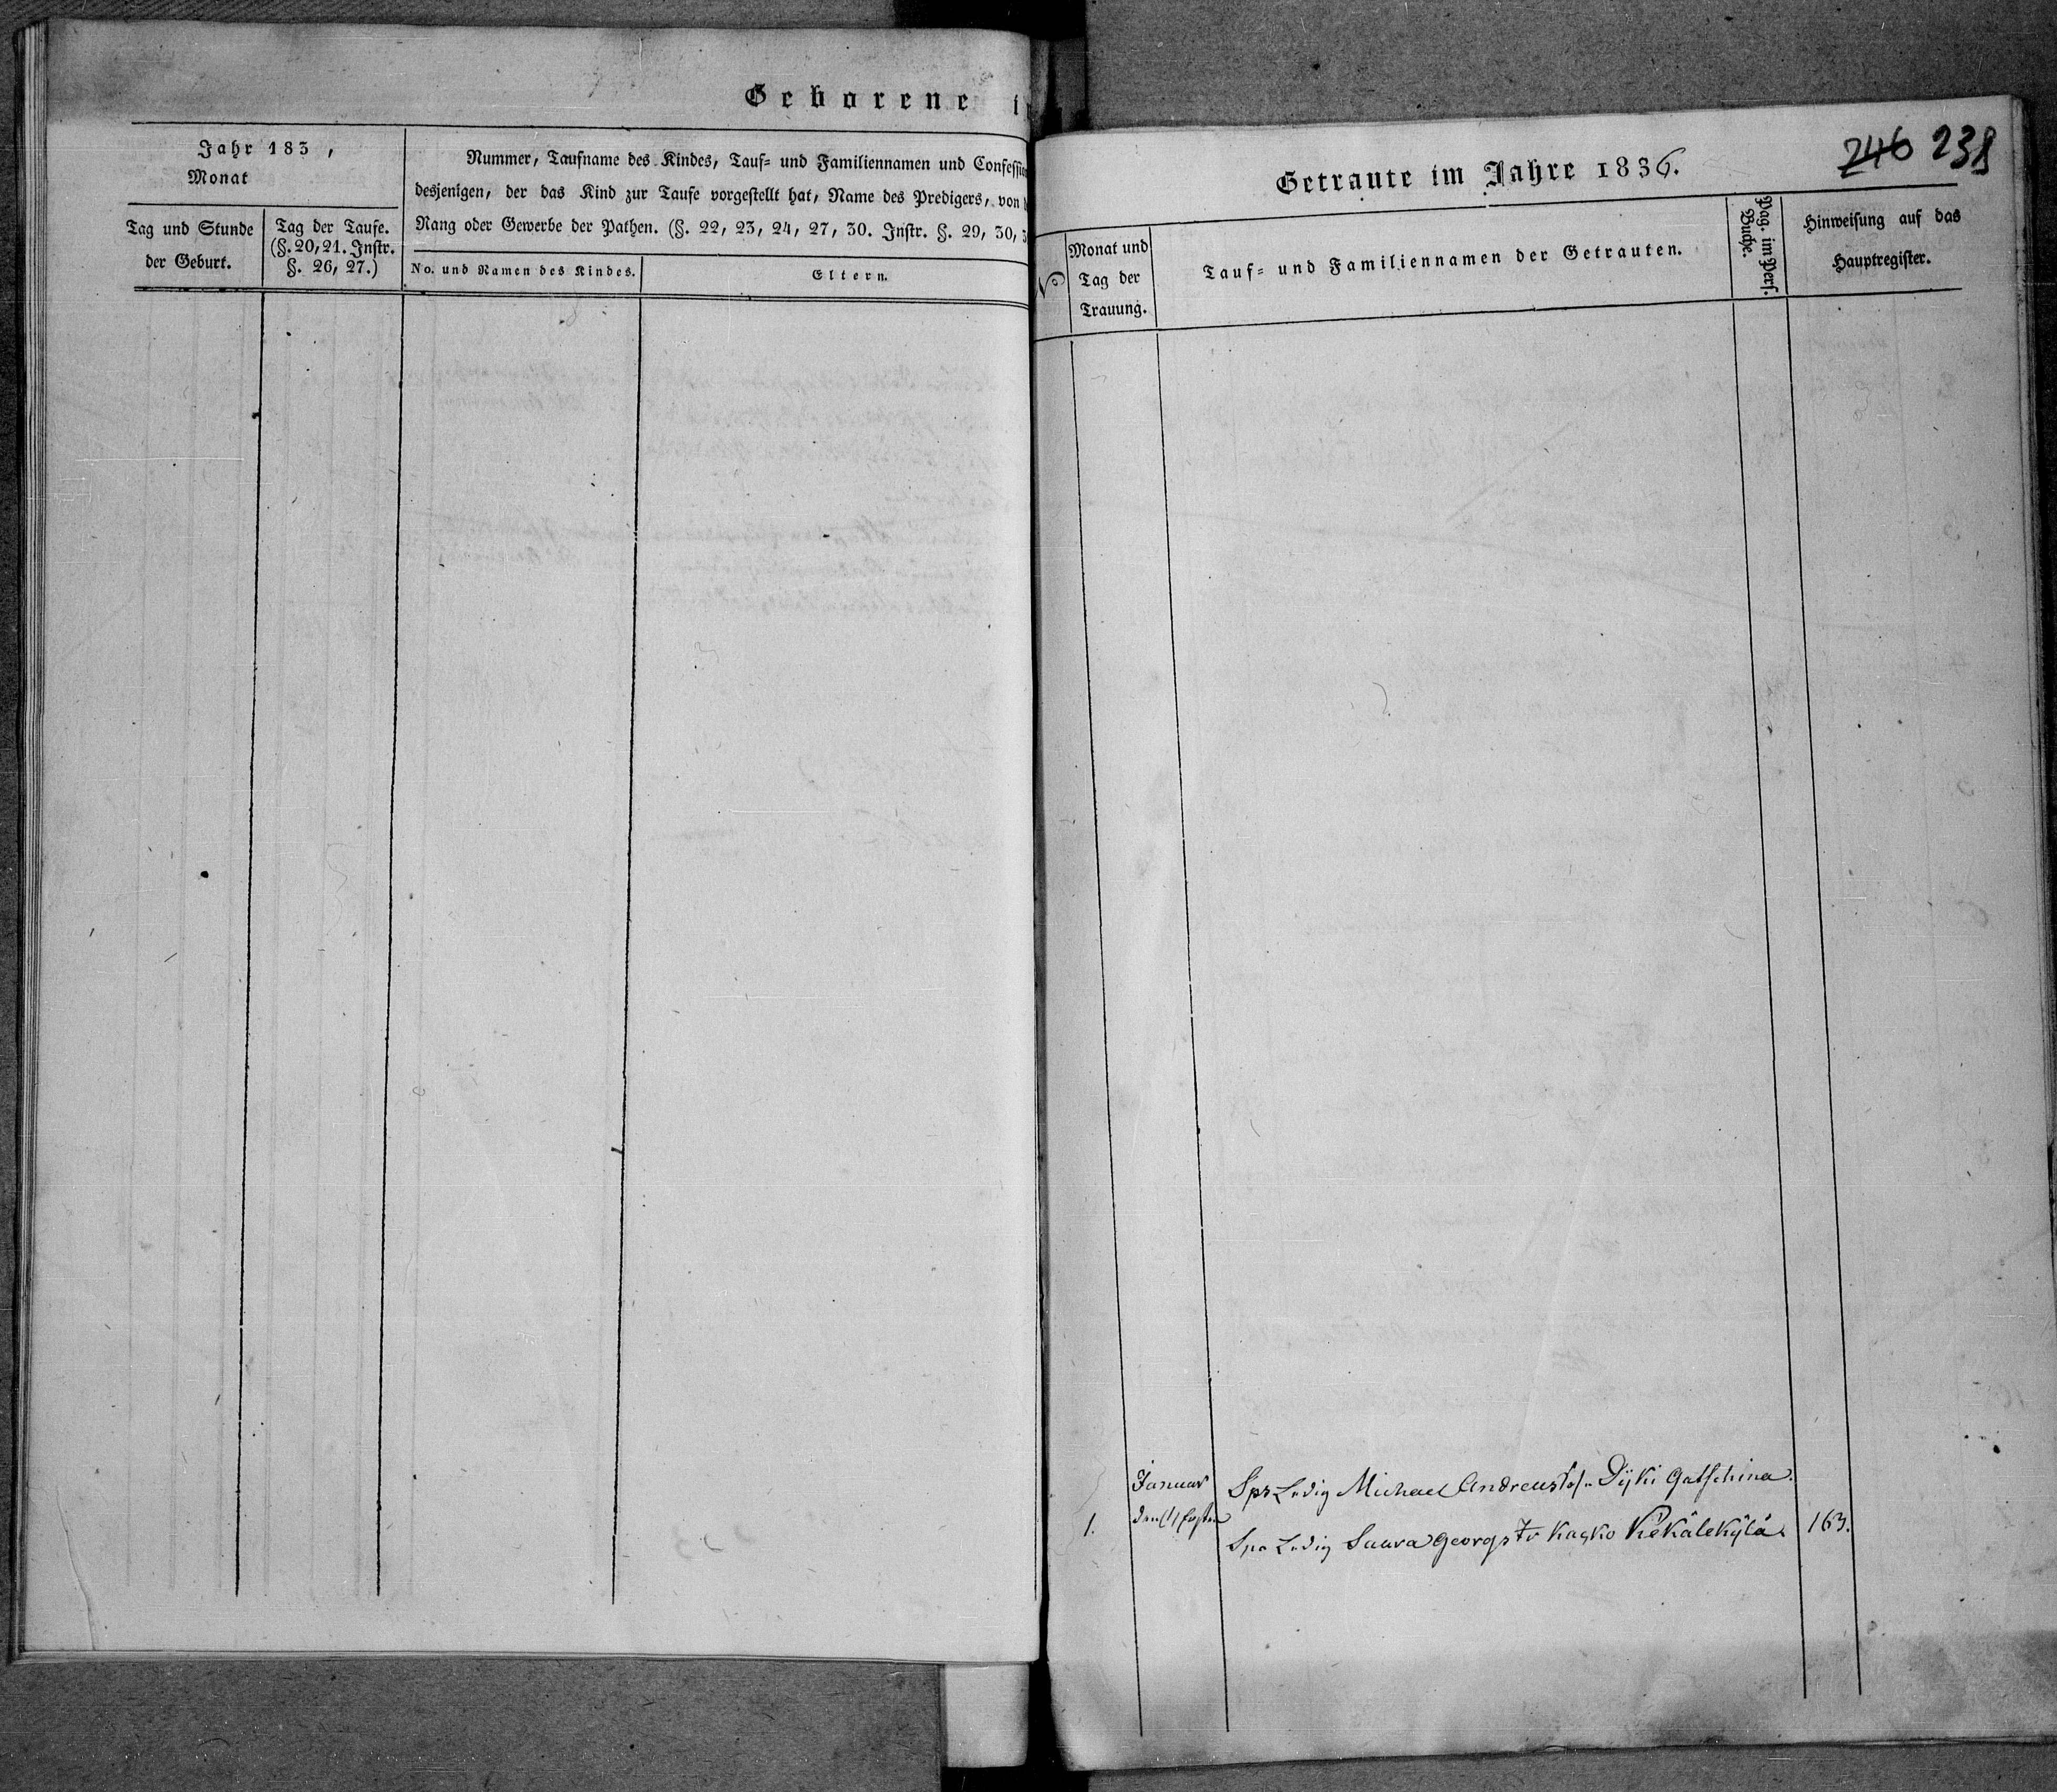 Geborene i
Jahr 183 ,
Monat
Tag und Stunde
der Geburt.
Tag der Taufe.
(§. 20, 21. Instr.
§. 26, 27.)
Nummer, Taufname des Kindes, Tauf= und Familiennamen und Confession
desjenigen, der das Kind zur Taufe vorgestellt hat, Name des Predigers, von
Rang oder Gewerbe der Pathen. (§. 22, 23, 24, 27, 30. Instr. §. 29, 30, 3
No. und Namen des Kindes.
Eltern.
246 238
Getraute im Jahre 1836.
No
Monat und
Tag der
Trauung.
Tauf= und Familiennamen der Getrauten.
Pag. im Pers.
Buche.
Hinweisung auf das
Hauptregister.
Januar
1.
Michael Andreus Gatschina.
Ledig Saava Georgs Kasko Kekälekylä
163.